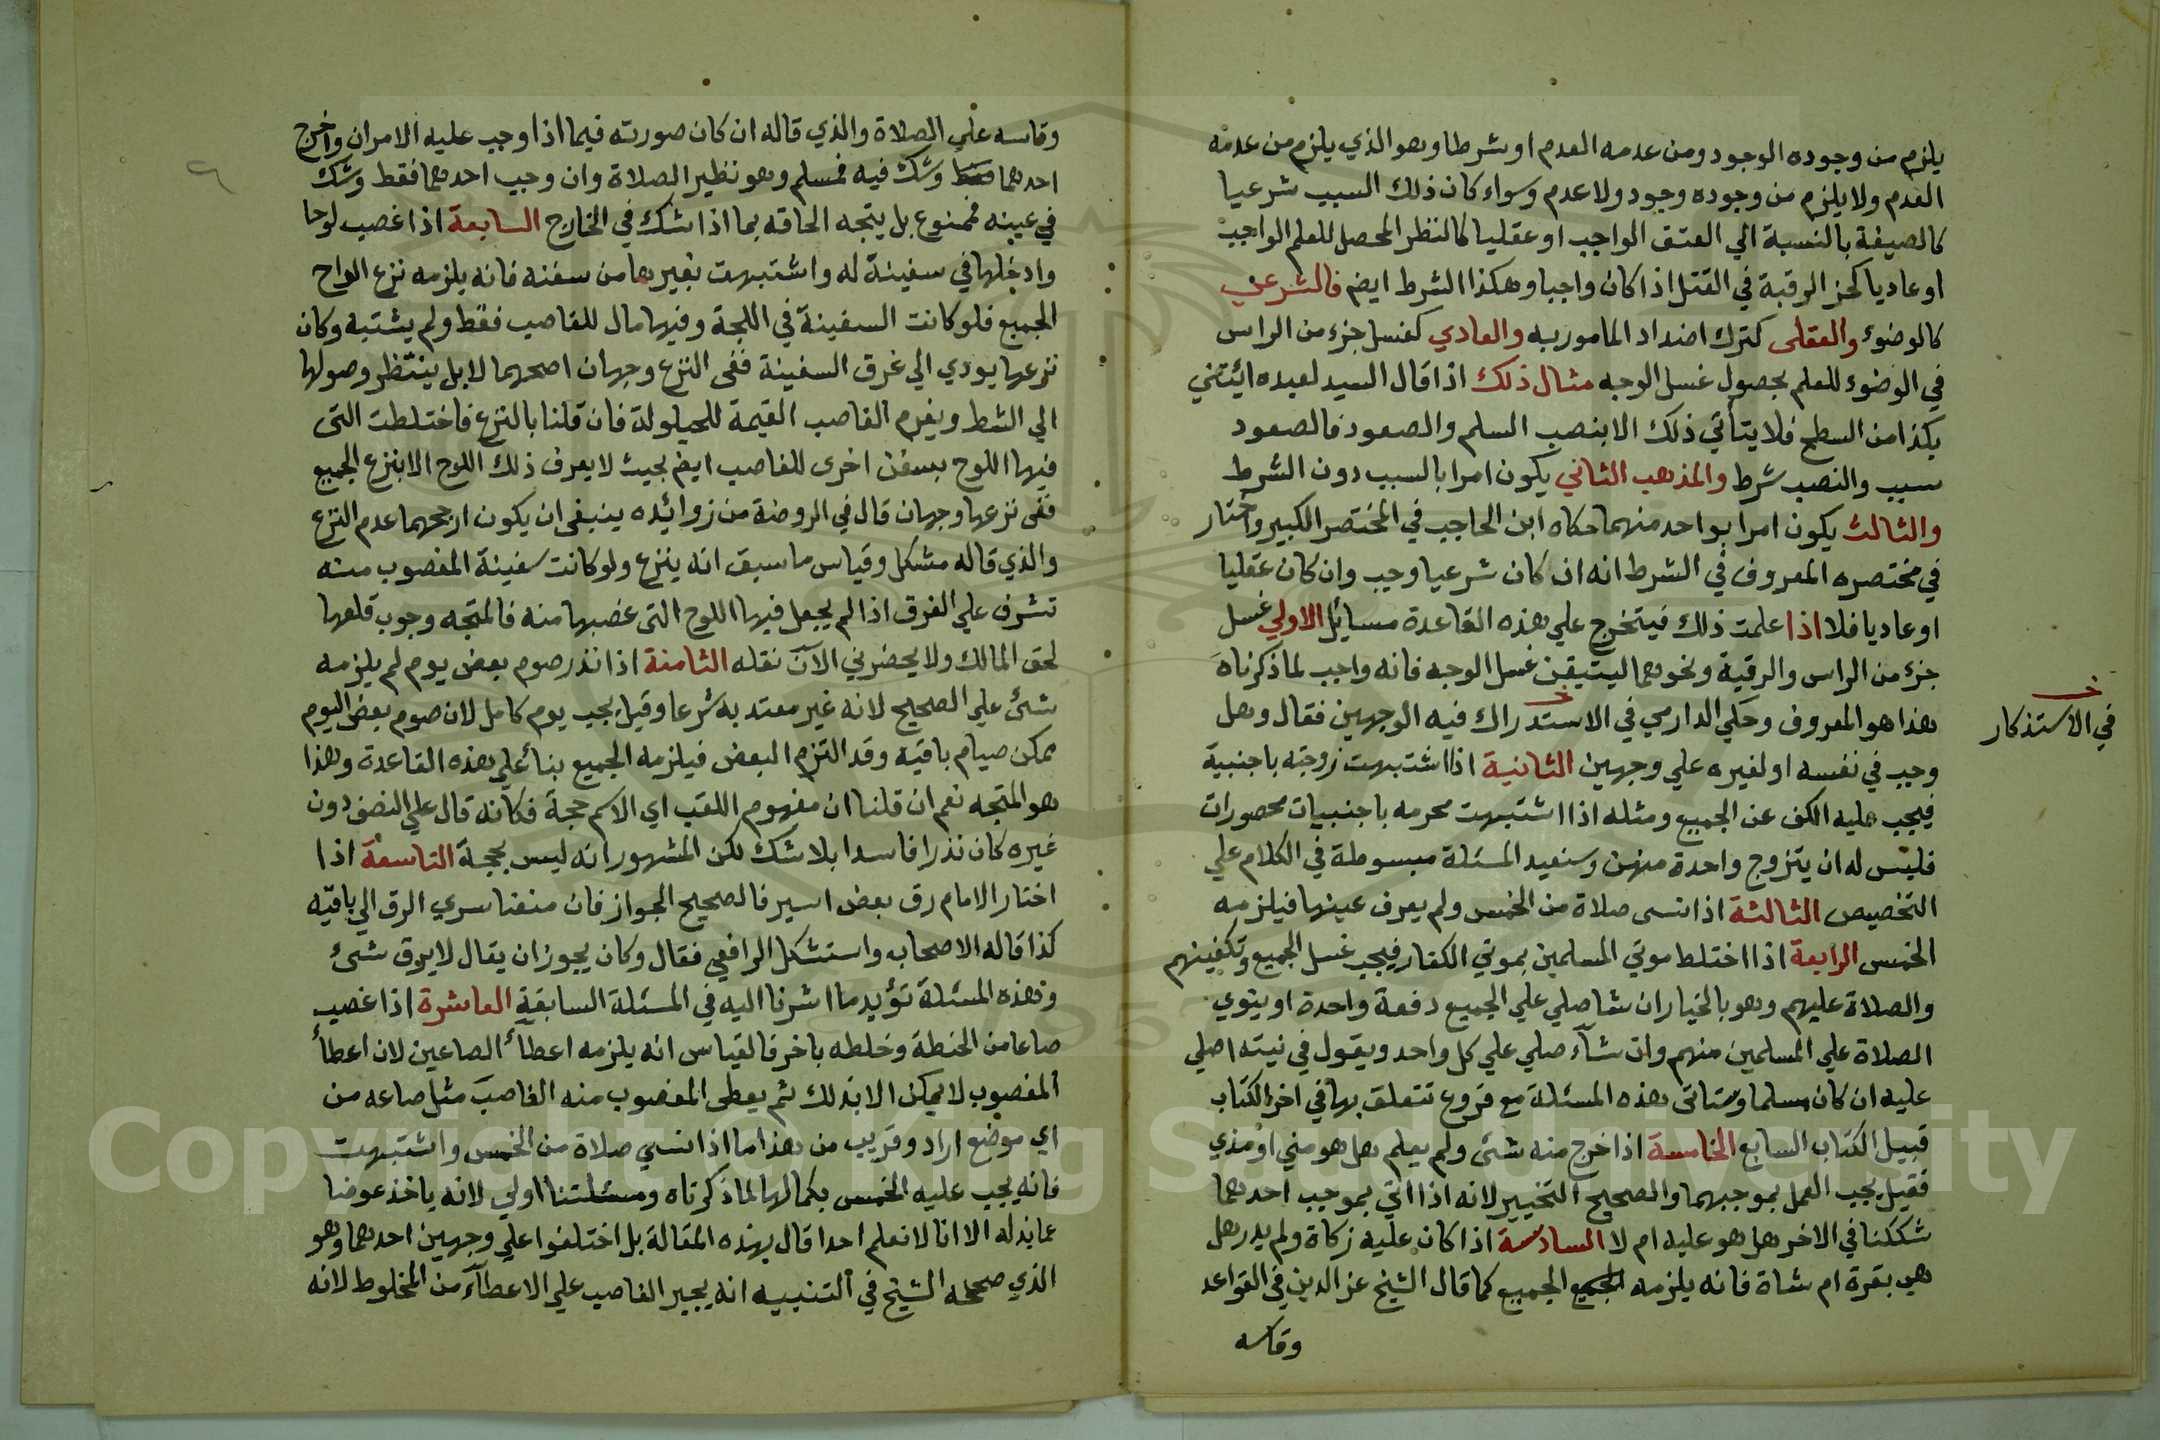 يلزم من وجوده الوجود ومن عدمه العدم او شرطا وهو الذي يلزم من عدمه
العدم ولا يلزم من وجوده وجود ولا عدم وسواء كان ذلك السبب شرعيا
كالصيغة بالنسبة الي العتق الواجب او عقليا كالنظر المحصل للعلم الواجب
او عاديا كحز الرقبة في القتل اذا كان واجبا وهكذا الشرط ايضم فالشرعي
كالوضوء والعقلى كترك اضداد المامور به والعادي كغسل جزء من الراس
في الوضوء للعلم بحصول غسل الوجه مثال ذلك اذا قال السيد لعبده ائتني
بكذا من السطح فلا يتأتي ذلك الا بنصب السلم والصعود فالصعود
سبب والنصب شرط والمذهب الثاني يكون امرا بالسبب دون الشرط
والثالث يكون امرا بواحد منهما حكاه ابن الحاجب في المختصر الكبير واختار
في مختصره المعروف في الشرط انه ان كان شرعيا وجب وان كان عقليا
او عاديا فلا اذا علمت ذلك فيتخرج علي هذه القاعدة مسايل الاولي غسل
جزء من الراس والرقبة ونحوهما ليتيقن غسل الوجه فانه واجب لما ذكرناه
هذا هو المعروف وحكي الدارمي في الاستدراك فيه الوجهين فقال وهل
خـ
في الاستذكار
وجب في نفسه او لغيره علي وجهين الثانية اذا اشتبهت زوجته باجنبية
فيجب عليه الكف عن الجميع ومثله اذا اشتبهت محرمه باجنبيات محصورات
فليس له ان يتزوج واحدة منهن وسنعيد المسئلة مبسوطة في الكلام علي
التخصيص الثالثة اذا نسى صلاة من الخمس ولم يعرف عينها فيلزمه
الخمس الرابعة اذا اختلط موتي المسلمين بموتي الكفار فيجب غسل الجميع وتكفينهم
والصلاة عليهم وهو بالخيار ان شا صلي علي الجميع دفعة واحدة او ينوي
الصلاة علي المسلمين منهم وان شآء صلي علي كل واحد ويقول في نيته اصلي
عليه ان كان مسلما وستاتى هذه المسئلة مع فروع تتعلق بها في اخر الكتاب
قبيل الكتاب السابع الخامسة اذا خرج منه شئ ولم يعلم هل هو مني او مذي
فقيل يجب العمل بموجبهما والصحيح التخيير لانه اذا اتي بموجب احدهما
شككنا في الاخر هل هو عليه ام لا السادسة اذا كان عليه زكاة ولم يدر هل
هي بقرة ام شاة فانه يلزمه الجميع الجميع كما قال الشيخ عز الدين في القواعد
وقاسه
وقاسه علي الصلاة والذي قاله ان كان صورته فيما اذا وجب عليه الامران واخرج
احدهما فقط وشك فيه فمسلم وهو نظير الصلاة وان وجب احدهما فقط وشك
في عينه فممنوع بل يتجه الحاقه بما اذا شك في الخارج السابعة اذا غصب لوحا
وادخلها في سفينة له واشتبهت بغيرها من سفنه فانه يلزمه نزع الواح
الجميع فلو كانت السفينة في اللجة وفيها مال للغاصب فقط ولم يشتبه وكان
نزعها يودي الي غرق السفينة ففى النزع وجهان اصحهما لا بل ينتظر وصولها
الي الشط ويغرم الغاصب القيمة للحيلولة فان قلنا بالنزع فاختلطت التى
فيها اللوح بسفن اخرى للغاصب ايضم بحيث لا يعرف ذلك اللوح الا بنزع الجميع
ففى نزعها وجهان قال في الروضة من زوائده ينبغى ان يكون ارجحهما عدم النزع
والذي قاله مشكل وقياس ما سبق انه ينزع ولو كانت سفينة المغصوب منه
تشرف علي الغرق اذا لم يجعل فيها اللوح التى غصبها منه فالمتجه وجوب قلعها
لحق المالك ولا يحضرني الآن نقله الثامنة اذا نذر صوم بعض يوم لم يلزمه
شئ علي الصحيح لانه غير معتد به شرعا وقيل يجب يوم كامل لان صوم بعض اليوم
ممكن صيام باقيه وقد التزم البعض فيلزمه الجميع بنائ علي هذه القاعدة وهذا
هو المتجه نعم ان قلنا ان مفهوم اللقب اي الاسم حجة فكانه قال علي النصف دون
غيره كان نذرا فاسدا بلا شك لكن المشهور انه ليس بحجة التاسعة اذا
اختار الامام رق بعض اسير فالصحيح الجواز فان منعنا سري الرق الي باقيه
كذا قاله الاصحاب واستشكل الرافعي فقال وكان يجوز ان يقال لا يرق شئ
وهذه المسئلة تؤيد ما اشرنا اليه في المسئلة السابقة العاشرة اذا غصب
صاعا من الحنطة وخلطه باخر فالقياس انه يلزمه اعطاء الصاعين لان اعطاء
المغصوب لا يمكن الا بذلك ثم يعطى المغصوب منه الغاصب مثل صاعه من
اي موضع اراد وقريب من هذا ما اذا نسي صلاة من الخمس واشتبهت
فانه يجب عليه الخمس بكمالها لما ذكرناه ومسئلتنا اولي لانه ياخذ عوضا
عما بذله الا انا لا نعلم احدا قال بهذه المقالة بل اختلفوا علي وجهين احدهما وهو
الذي صححه الشيخ في التنبيه انه يجبر الغاصب علي الاعطآء من المخلوط لانه
٩